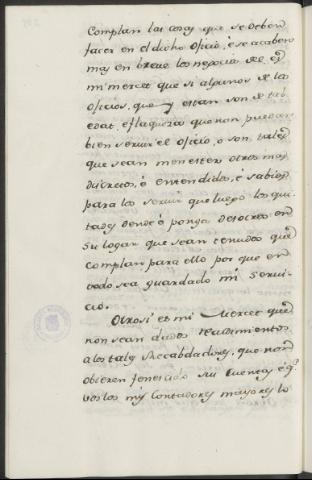 complan las cosas que se deben
facer en el dicho oficio, é se acaben
mas en breve los negocios de ella
mi merced que si algunos de los
oficios, que y estan son de tal
edat, é flaqueza que non puedan
bien servir el oficio, ó son tales
que sean menester otros mas
discretos, ó entendidos, é sabios
para los servir que luego los qui-
tades dende é ponga des otros en
su logar que sean tenudos que
complan para ello por que en
todo sea guardado mi servi-
cio.
Otrosi es mi merced que
non sean dados recudimientos
a los tales Recabdadores, que non
obieren fenescido sus cuentas é q.
vos los mis contadores mayores lo